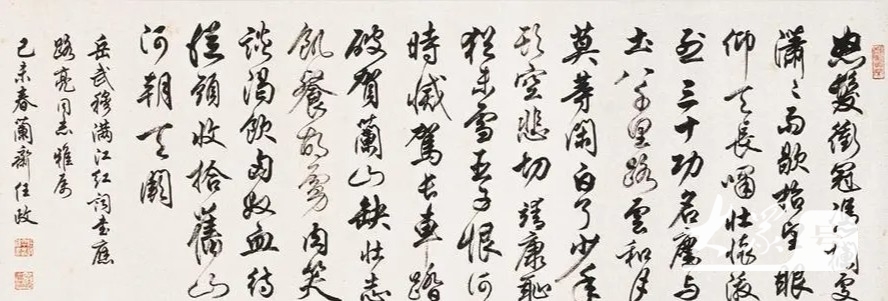 怒髮衝冠憑欄處
瀟々雨歇抬望眼
仰天長嘯壯懷激
烈三十功名塵與
土八千里路雲和月
莫等閑白了少年
頭空悲切靖康恥
猶未雪臣子恨何
時滅駕長車踏
破賀蘭山缺壯志
飢餐胡虜肉笑
談渴飲匈奴血待
從頭收拾舊山
河朝天闕
岳武穆滿江红詞書應
路亮同志雅屬
己未春蘭齋任政